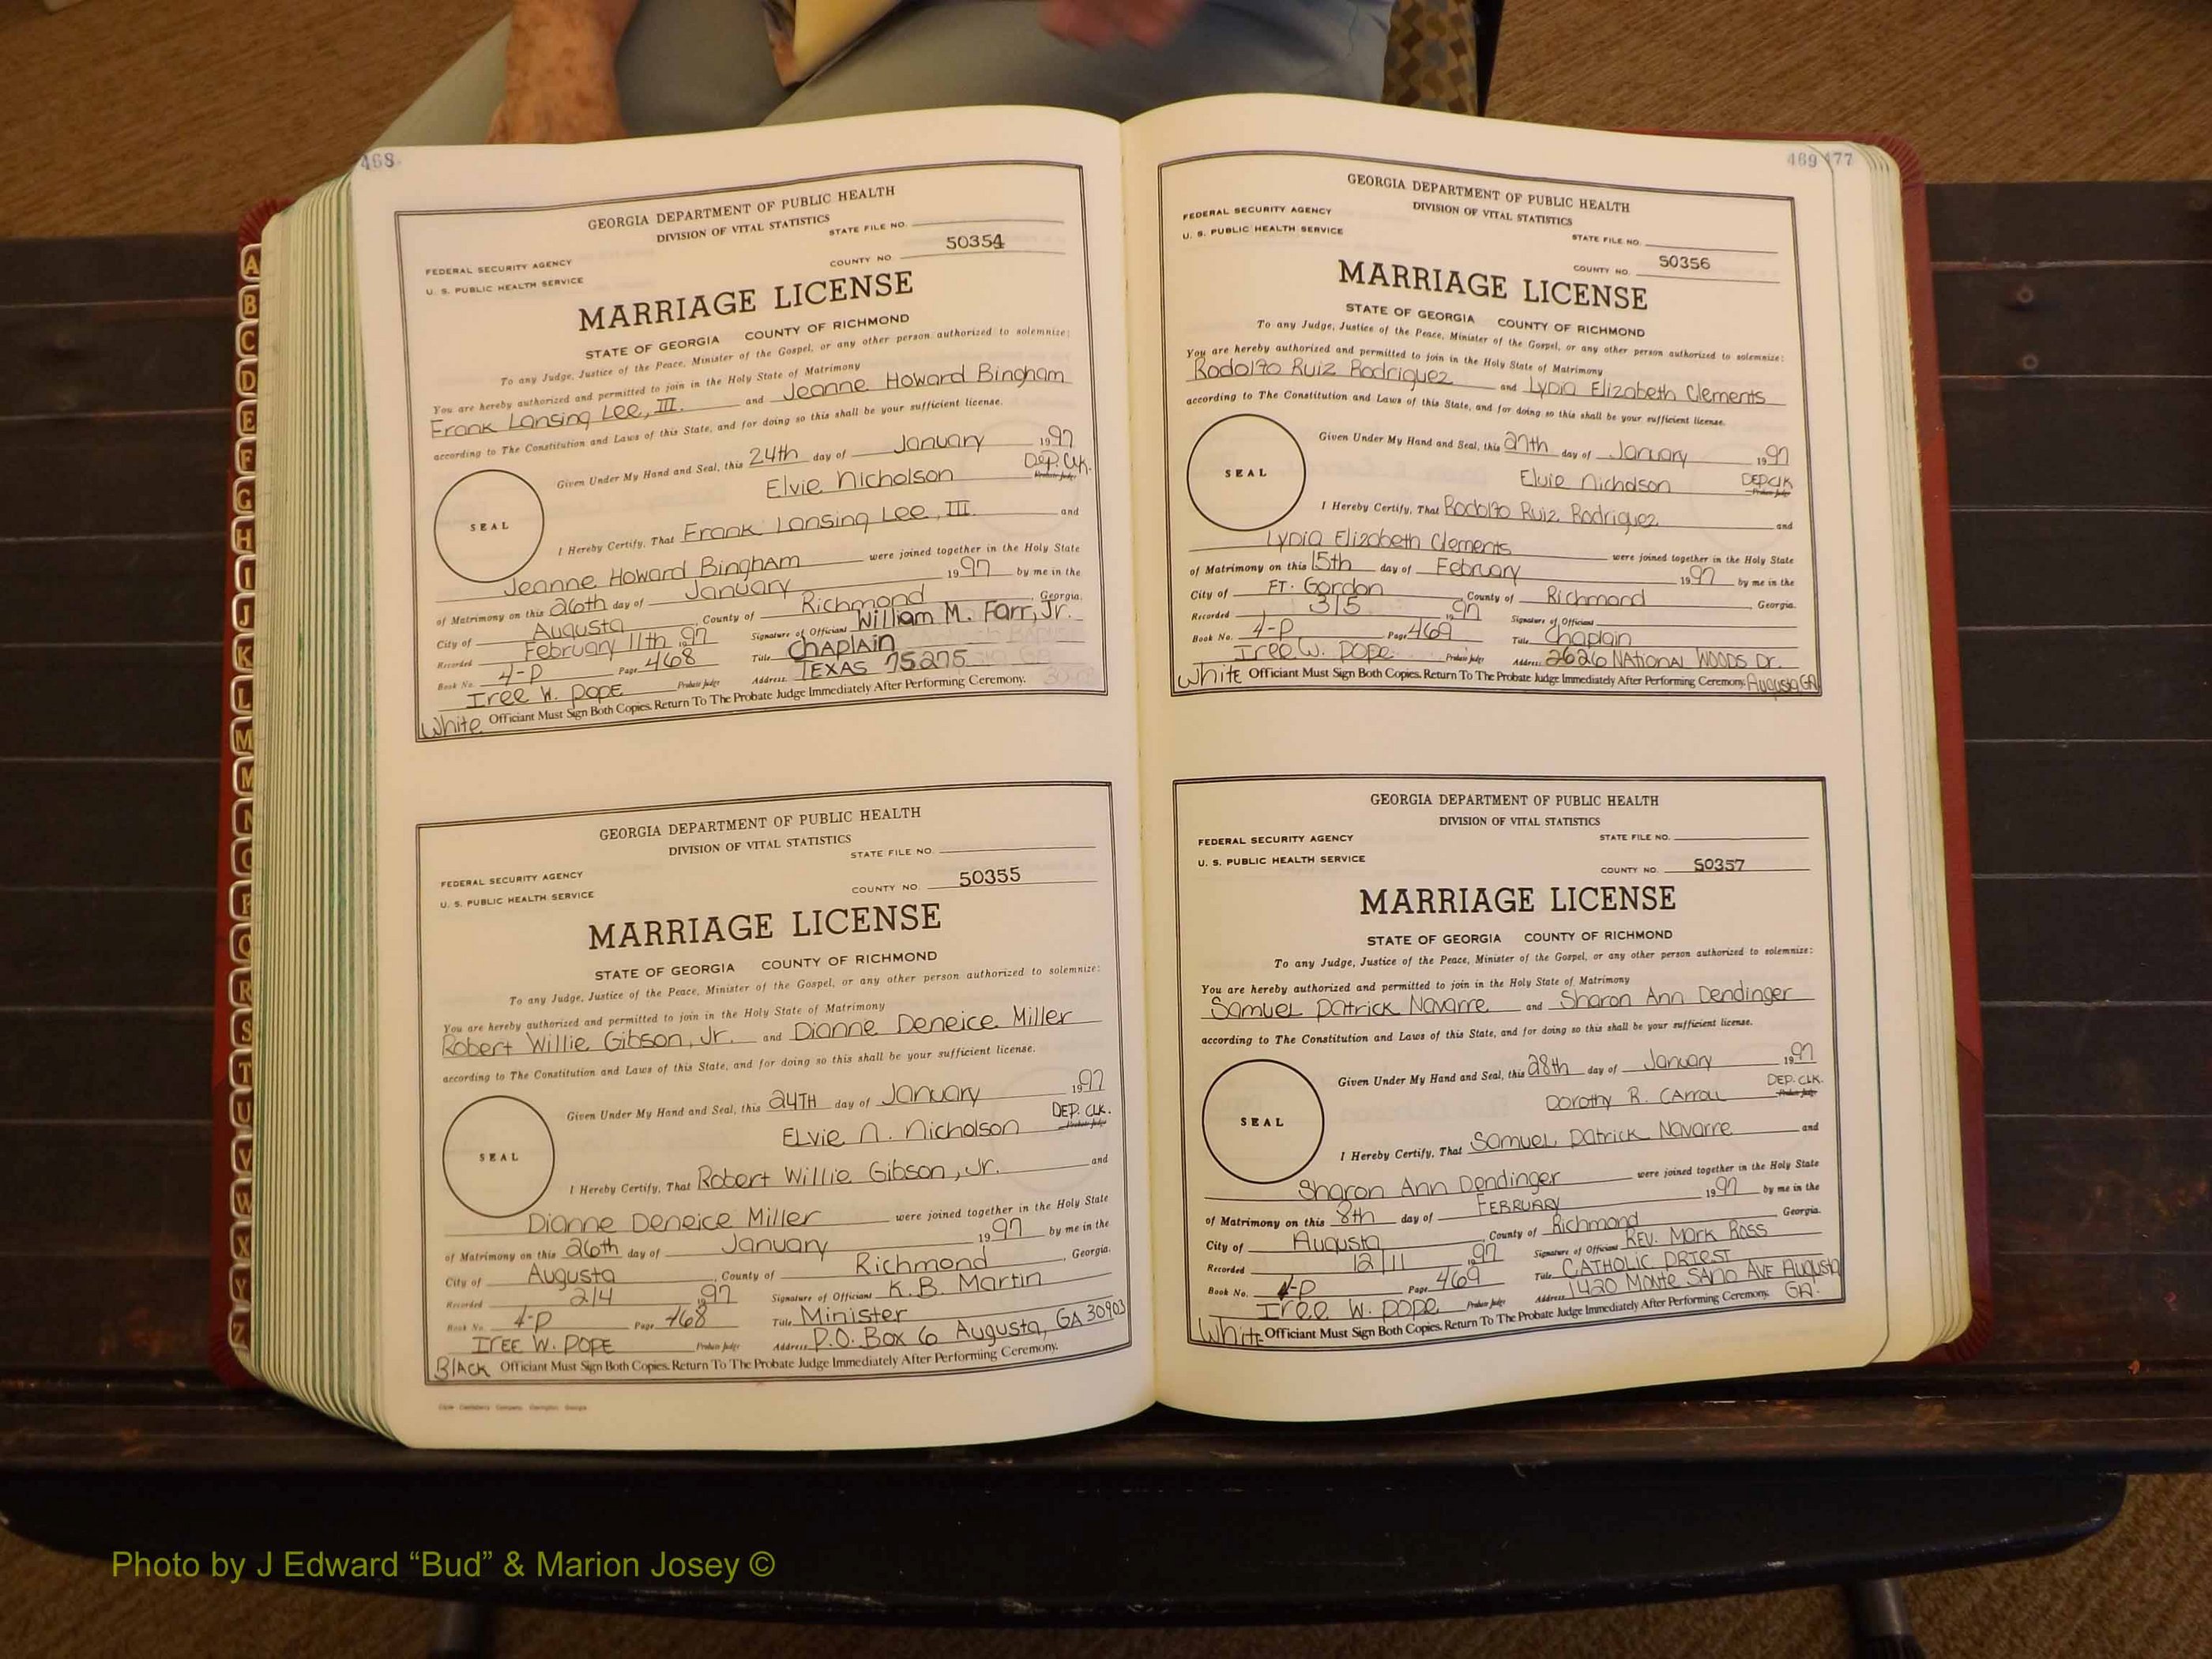 468
GEORGIA DEPARTMENT OF PUBLIC HEALTH
DIVISION OF VITAL STATISTICS
STATE FILE NO.
FEDERAL SECURITY AGENCY
U. S. PUBLIC HEALTH SERVICE
COUNTY NO. 50354
MARRIAGE LICENSE
STATE OF GEORGIA COUNTY OF RICHMOND
To any Judge, Justice of the Peace, Minister of the Gospel, or any other person authorized to solemnize:
You are hereby authorized and permitted to join in the Holy State of Matrimony
Frank Lansing Lee, III. and Jeanne Howard Bingham
according to The Constitution and Laws of this State, and for doing so this shall be your sufficient license.
Given Under My Hand and Seal, this 24th day of January 1997
Elvie Nicholson Dep. Clk. Probate Judge
SEAL
I Hereby Certify, That Frank Lansing Lee, III. and
Jeanne Howard Bingham were joined together in the Holy State
of Matrimony on this 26th day of January 1997 by me in the
City of Augusta, County of Richmond, Georgia.
Recorded February 11th 1997 Signature of Officiant William M. Farr, Jr.
Book No. 4-P Page 468 Title Chaplain
Iree W. Pope Probate Judge Address TEXAS 75275
White Officiant Must Sign Both Copies. Return To The Probate Judge Immediately After Performing Ceremony.
GEORGIA DEPARTMENT OF PUBLIC HEALTH
DIVISION OF VITAL STATISTICS
STATE FILE NO.
FEDERAL SECURITY AGENCY
U. S. PUBLIC HEALTH SERVICE
COUNTY NO. 50355
MARRIAGE LICENSE
STATE OF GEORGIA COUNTY OF RICHMOND
To any Judge, Justice of the Peace, Minister of the Gospel, or any other person authorized to solemnize:
You are hereby authorized and permitted to join in the Holy State of Matrimony
Robert Willie Gibson, Jr. and Dianne Deneice Miller
according to The Constitution and Laws of this State, and for doing so this shall be your sufficient license.
Given Under My Hand and Seal, this 24TH day of January 1997
Elvie N. Nicholson DEP. CLK. Probate Judge
SEAL
I Hereby Certify, That Robert Willie Gibson, Jr. and
Dianne Deneice Miller were joined together in the Holy State
of Matrimony on this 26th day of January 1997 by me in the
City of Augusta, County of Richmond, Georgia.
Recorded 2/4 1997 Signature of Officiant K.B. Martin
Book No. 4-P Page 468 Title Minister
IREE W. POPE Probate Judge Address P.O. Box 6 Augusta, GA 30903
Black Officiant Must Sign Both Copies. Return To The Probate Judge Immediately After Performing Ceremony.
469 477
GEORGIA DEPARTMENT OF PUBLIC HEALTH
DIVISION OF VITAL STATISTICS
FEDERAL SECURITY AGENCY
U. S. PUBLIC HEALTH SERVICE
STATE FILE NO.
COUNTY NO. 50356
MARRIAGE LICENSE
STATE OF GEORGIA COUNTY OF RICHMOND
To any Judge, Justice of the Peace, Minister of the Gospel, or any other person authorized to solemnize:
You are hereby authorized and permitted to join in the Holy State of Matrimony
Rodolfo Ruiz Rodriguez and Lydia Elizabeth Clements
according to The Constitution and Laws of this State, and for doing so this shall be your sufficient license.
Given Under My Hand and Seal, this 27th day of January 1997
Elvie Nicholson DEP CLK Probate Judge
SEAL
I Hereby Certify, That Rodolfo Ruiz Rodriguez and
Lydia Elizabeth Clements were joined together in the Holy State
of Matrimony on this 15th day of February 1997 by me in the
City of FT. Gordon County of Richmond, Georgia.
Recorded 3/5 1997 Signature of Officiant
Book No. 4-P Page 469 Title Chaplain
Iree W. Pope Probate Judge Address 2626 National Woods Dr.
White Officiant Must Sign Both Copies. Return To The Probate Judge Immediately After Performing Ceremony. Augusta, GA
GEORGIA DEPARTMENT OF PUBLIC HEALTH
DIVISION OF VITAL STATISTICS
FEDERAL SECURITY AGENCY
STATE FILE NO.
U. S. PUBLIC HEALTH SERVICE
COUNTY NO. 50357
MARRIAGE LICENSE
STATE OF GEORGIA COUNTY OF RICHMOND
To any Judge, Justice of the Peace, Minister of the Gospel, or any other person authorized to solemnize:
You are hereby authorized and permitted to join in the Holy State of Matrimony
Samuel Patrick Navarre and Sharon Ann Dendinger
according to The Constitution and Laws of this State, and for doing so this shall be your sufficient license.
Given Under My Hand and Seal, this 28th day of January 1997
Dorothy R. Carroll DEP. CLK. Probate Judge
SEAL
I Hereby Certify, That Samuel Patrick Navarre and
Sharon Ann Dendinger were joined together in the Holy State
of Matrimony on this 8th day of FEBRUARY 1997 by me in the
City of Augusta, County of Richmond Georgia.
Recorded 12/11 1997 Signature of Officiant REV. Mark Ross
Book No. 4-P Page 469 Title CATHOLIC PRIEST
Iree W. Pope Probate Judge Address 1420 Monte Sano AVE Augusta GA.
White Officiant Must Sign Both Copies. Return To The Probate Judge Immediately After Performing Ceremony.
A
B
C
D
E
F
G
H
I
J
K
L
M
M
N
O
P
Q
R
S
T
U
V
W
X
Y
Z
Photo by J Edward “Bud” & Marion Josey ©